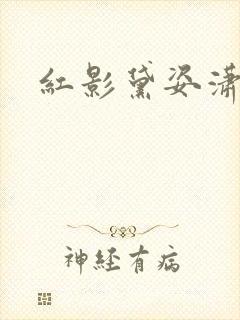 紅影黛姿瀟
神經有病